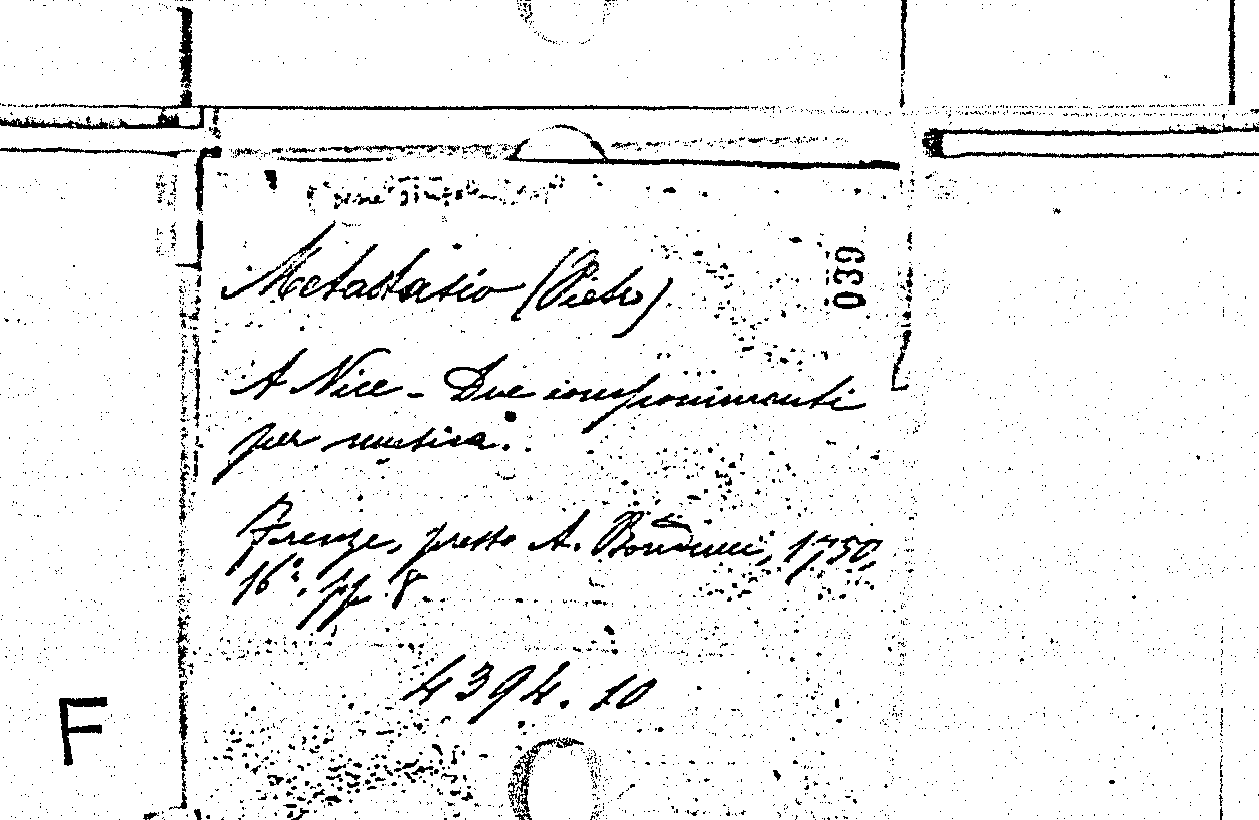 Metastasio (Pietro)
039
A Nice - Due componimenti
per musica.
Firenze, presso A. Bonducci, 1750,
16°. pp. 8.
4394. 10
F